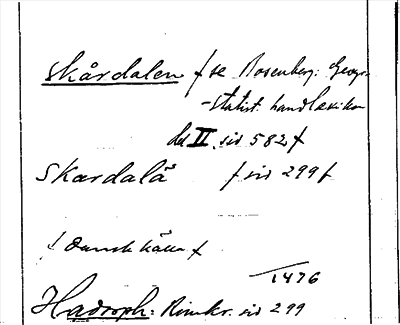 Skårdalen f se Rosenberg: Geogr.
-statist. handlexikon
del II, sid 582 f
Skardalå f sid 299 f
f Dansk källa f
1476
Hadroph: Rimkr. sid 299